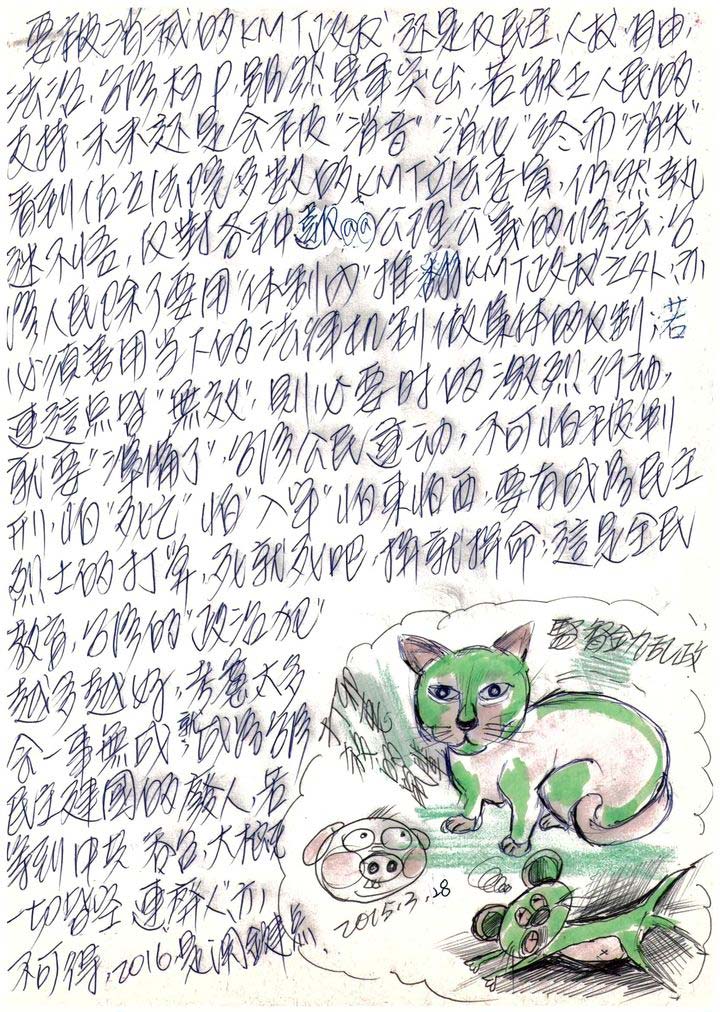 要被消滅的KMT政权,还是仅民主,人权,自由,
法治,台湾柯P,虽然異軍突出,若缺乏人民的
支持,未來还是会在被"消音""消化"終而"消失"
看到佔立法院多数的KMT立法委員,仍然執
迷不悟,仅對各种 @@公理公義的修法;台
湾人民除了要用"体制内"推翻KMT政权之外,亦
必須善用当下的法律机制做集体的仅制;若
連這点皆"無效",則必要時的激烈行动,
就要"準備了",台湾公民運动,不可怕在被判
刑,怕"死亡"怕"入牢"怕東怕西,要有成為民主
烈士的打算,死就死吧,拚就拚命,這是全民
教育,台湾的"政治犯"
越多越好,考慮太多
会一事無成,就成為台湾
民主建國的廢人,若
等到中共 吞台,大概
一切皆空 連 人亦
不可得,2016是関鍵点.
監督 乱政
2015.3.28